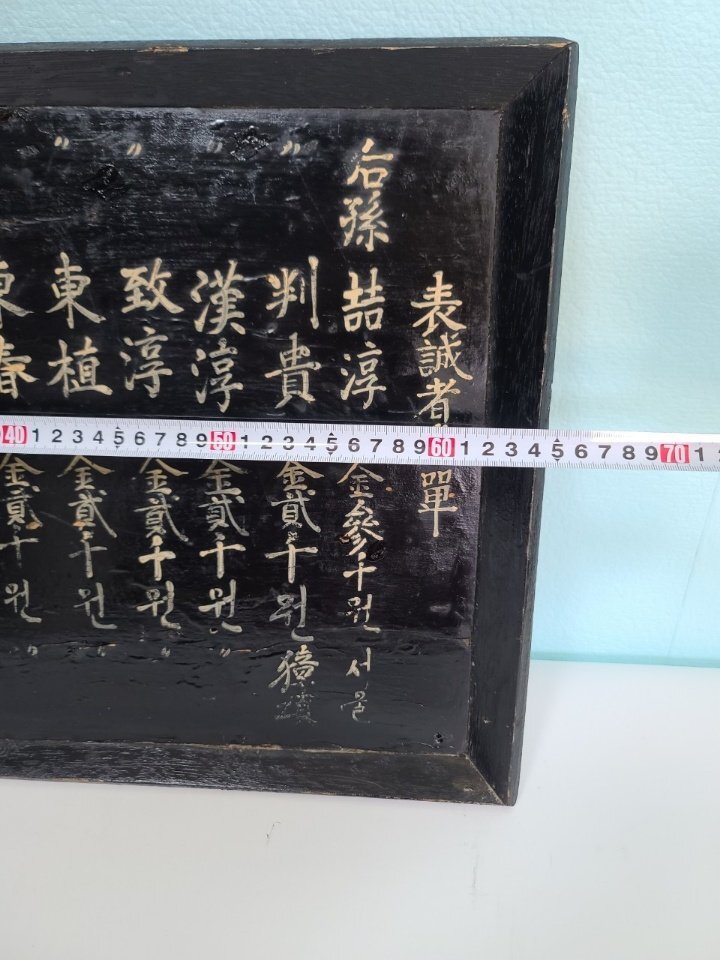 表誠者 單
后孫 喆淳 金參千원 서울
〃 判貴 金貳千원 獐
〃 漢淳 金貳千원 〃
〃 致淳 金貳千원 〃
〃 東植 金貳千원 〃
東春 金貳千원 〃
40 1 2 3 4 5 6 7 8 9 50 1 2 3 4 5 6 7 8 9 60 1 2 3 4 5 6 7 8 9 70 1